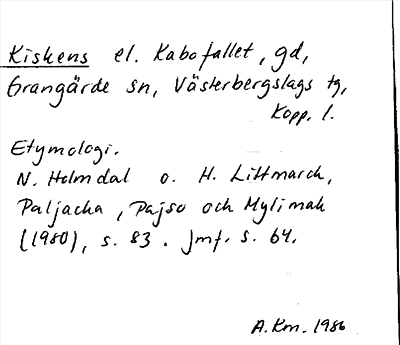 Kiskens el. Kabofallet, gd,
Grangärde sn, Västerbergslags tg,
Kopp. l.
Etymologi.
N. Holmdal o. H. Littmarck,
Paljacka, Pajso och Mylimak
(1980), s. 83. Jmf. s. 64.
A.Km. 1986